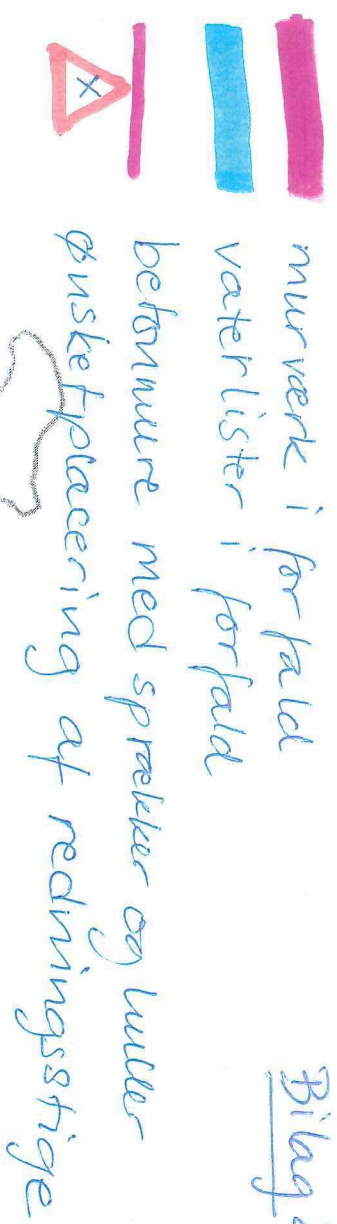 Bilag
murværk i forfald
vaterlister i forfald
betonmure med sprækker og huller
ønsket placering af redningsstige
x